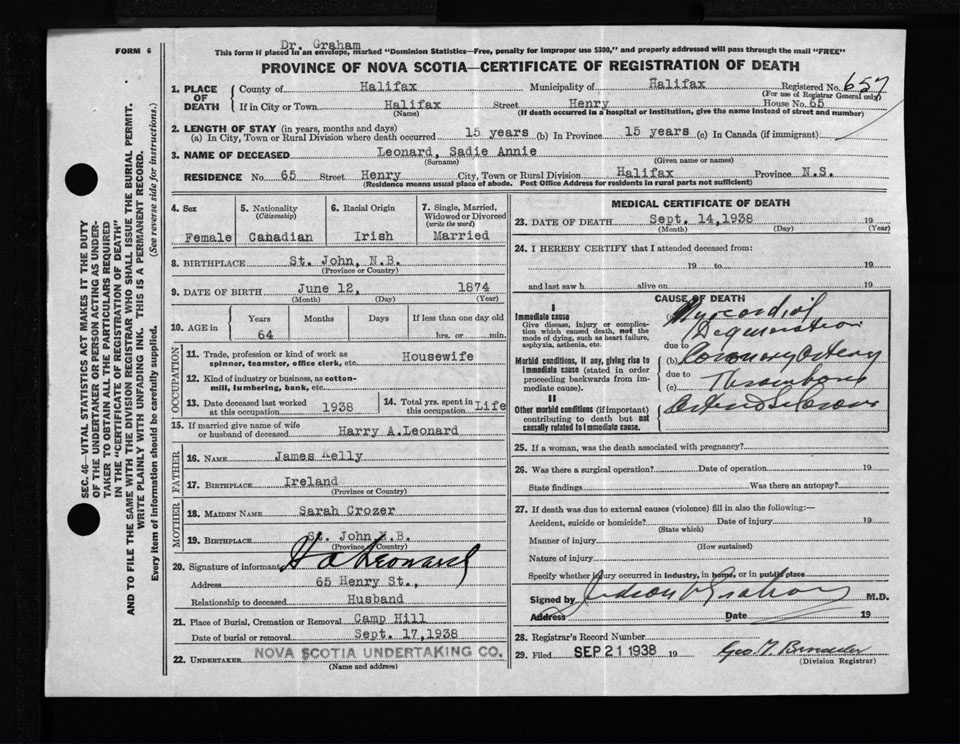 Dr. Graham
FORM 6
This form if placed in an envelope, marked "Dominion Statistics—Free, penalty for improper use $300," and properly addressed will pass through the mail "FREE"
PROVINCE OF NOVA SCOTIA—CERTIFICATE OF REGISTRATION OF DEATH
1. PLACE OF DEATH
County of Halifax Municipality of Halifax Registered No. 657
(For use of Registrar General only)
If in City or Town Halifax Street Henry House No. 65
(Name) (If death occurred in a hospital or institution, give the name instead of street and number)
2. LENGTH OF STAY (in years, months and days)
(a) In City, Town or Rural Division where death occurred 15 years (b) In Province 15 years (c) In Canada (if immigrant)
3. NAME OF DECEASED Leonard, Sadie Annie
(Surname) (Given name or names)
RESIDENCE No. 65 Street Henry City, Town or Rural Division Halifax Province N.S.
(Residence means usual place of abode. Post Office Address for residents in rural parts not sufficient)
4. Sex
Female
5. Nationality
(Citizenship)
Canadian
6. Racial Origin
Irish
7. Single, Married,
Widowed or Divorced
(write the word)
Married
8. BIRTHPLACE St. John, N.B.
(Province or Country)
9. DATE OF BIRTH June 12, 1874
(Month) (Day) (Year)
10. AGE in Years Months Days If less than one day old
64 hrs. or min.
OCCUPATION
11. Trade, profession or kind of work as Housewife
spinner, teamster, office clerk, etc.
12. Kind of industry or business, as cotton-
mill, lumbering, bank, etc.
13. Date deceased last worked
at this occupation 1938
14. Total yrs. spent in
this occupation Life
15. If married give name of wife
or husband of deceased Harry A.Leonard
FATHER
16. NAME James Kelly
17. BIRTHPLACE Ireland
(Province or Country)
MOTHER
18. MAIDEN NAME Sarah Crozer
19. BIRTHPLACE St. John N.B.
(Province or Country)
20. Signature of informant H A Leonard
Address 65 Henry St.,
Relationship to deceased Husband
21. Place of Burial, Cremation or Removal Camp Hill
Date of burial or removal Sept. 17,1938
22. UNDERTAKER NOVA SCOTIA UNDERTAKING CO.
(Name and address)
MEDICAL CERTIFICATE OF DEATH
23. DATE OF DEATH Sept. 14,1938 19
(Month) (Day) (Year)
24. I HEREBY CERTIFY that I attended deceased from:
19 to 19
and last saw h alive on 19
CAUSE OF DEATH
I
Immediate cause
Give disease, injury or complica-
tion which caused death, not the
mode of dying, such as heart failure,
asphyxia, asthenia, etc.
Morbid conditions, if any, giving rise to
immediate cause (stated in order
proceeding backwards from im-
mediate cause).
II
Other morbid conditions (if important)
contributing to death but not
causally related to immediate cause.
(a) Myocardial
Degeneration
due to
(b) Coronary Artery
due to
(c) Thrombosis
25. If a woman, was the death associated with pregnancy?
26. Was there a surgical operation? Date of operation 19
State findings Was there an autopsy?
27. If death was due to external causes (violence) fill in also the following:—
Accident, suicide or homicide? Date of injury 19
(State which)
Manner of injury
(How sustained)
Nature of injury
Specify whether injury occurred in industry, in home, or in public place
Signed by Judson V Graham M.D.
Address Date 19
28. Registrar's Record Number
29. Filed SEP 21 1938 19 Geo.
(Division Registrar)
SEC. 46—VITAL STATISTICS ACT MAKES IT THE DUTY
OF THE UNDERTAKER OR PERSON ACTING AS UNDER-
TAKER TO OBTAIN ALL THE PARTICULARS REQUIRED
IN THE "CERTIFICATE OF REGISTRATION OF DEATH"
AND TO FILE THE SAME WITH THE DIVISION REGISTRAR WHO SHALL ISSUE THE BURIAL PERMIT.
WRITE PLAINLY WITH UNFADING INK. THIS IS A PERMANENT RECORD.
Every item of information should be carefully supplied. (See reverse side for instructions.)